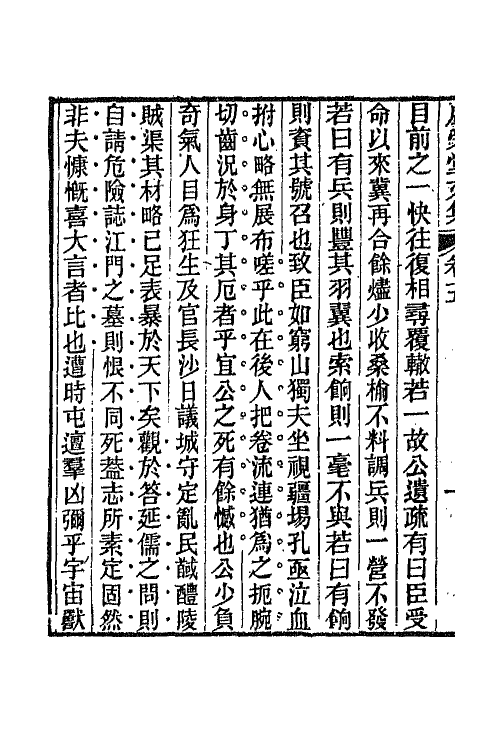 目前之一快往復相尋覆轍若一故公遺疏有曰臣受
命以來冀再合餘燼少收桑榆不料調兵則一營不發
若曰有兵則豐其羽翼也索餉則一毫不與若曰有餉
則資其號召也致臣如窮山獨夫坐視疆場孔亟泣血
拊心略無展布嗟乎此在後人把卷流連猶爲之扼腕
切齒況於身丁其厄者乎宜公之死有餘憾也公少負
奇氣人目爲狂生及官長沙日議城守定亂民馘醴陵
賊渠其材略已足表暴於天下矣觀於答延儒之問則
自請危險誌江門之墓則恨不同死葢志所素定固然
非夫慷慨喜大言者比也遭時屯邅羣凶彌乎宇宙獻